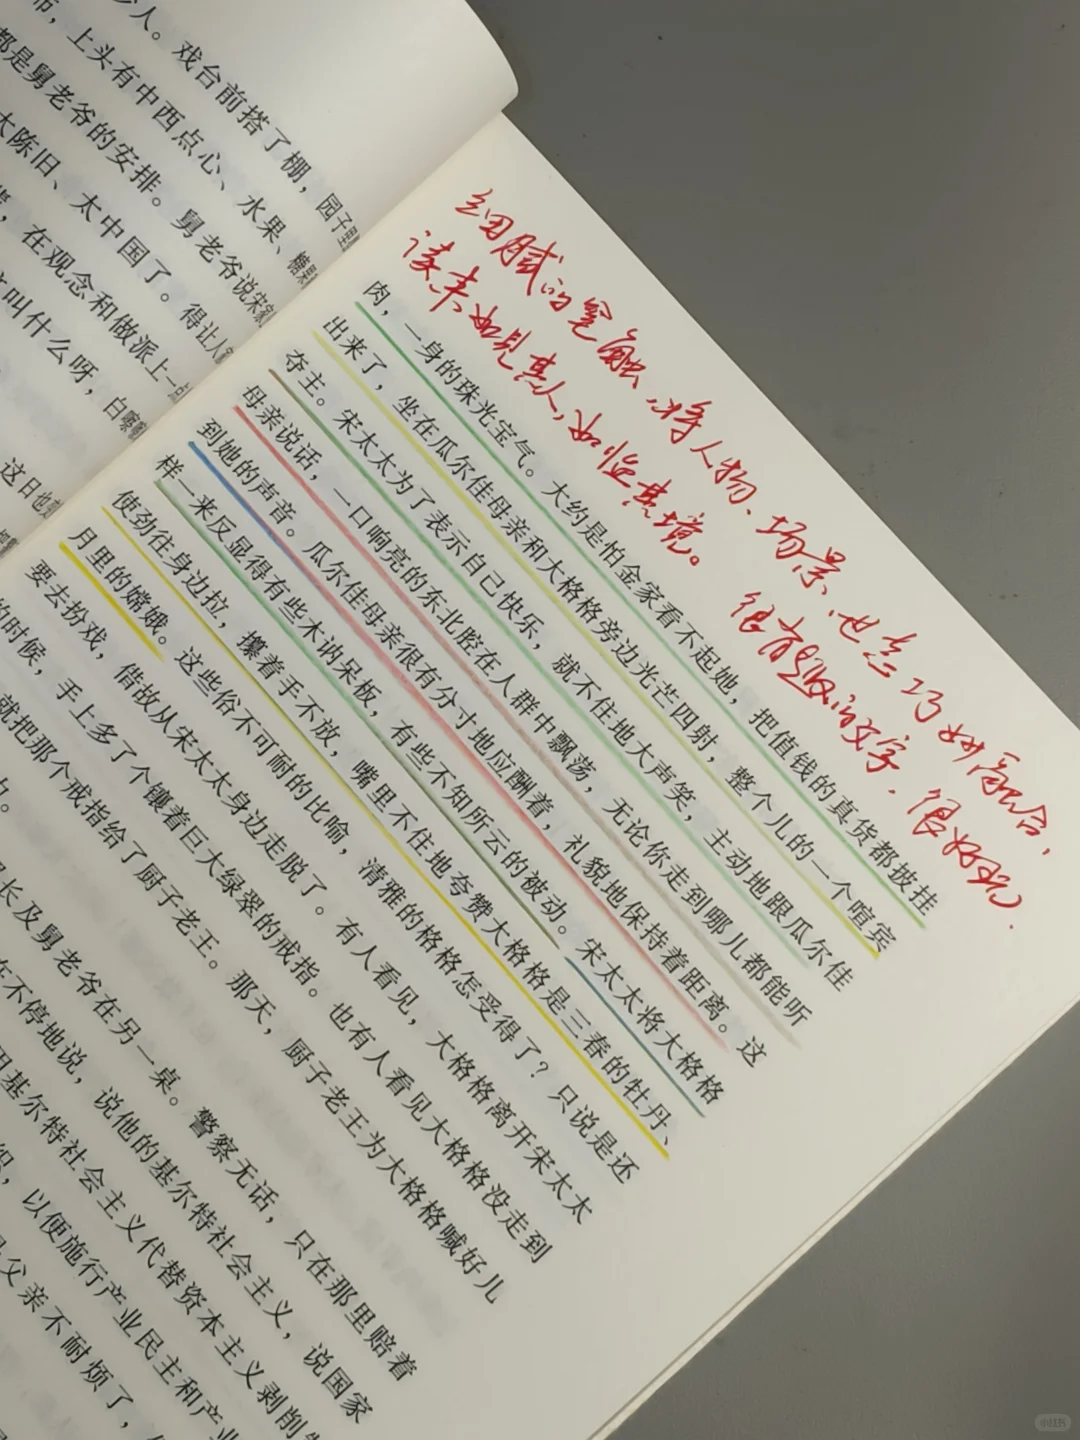 少人。戏台前搭了棚，园子里
布，上头有中西点心、水果、糖果
都是舅老爷的安排。舅老爷说宋家
太陈旧、太中国了。得让人
在观念和做派上一
叫什么呀，白
这日也
细腻的笔触，将人物、场景、也态巧妙融合，
读来如见其人，如临其境。很有趣的文字，很好玩。
肉，一身的珠光宝气。大约是怕金家看不起她，把值钱的真货都披挂
出来了，坐在瓜尔佳母亲和大格格旁边光芒四射，整个儿的一个喧宾
夺主。宋太太为了表示自己快乐，就不住地大声笑，主动地跟瓜尔佳
母亲说话，一口响亮的东北腔在人群中飘荡，无论你走到哪儿都能听
到她的声音。瓜尔佳母亲很有分寸地应酬着，礼貌地保持着距离。这
样一来反显得有些木讷呆板，有些不知所云的被动。宋太太将大格格
使劲往身边拉，攥着手不放，嘴里不住地夸赞大格格是三春的牡丹、
月里的嫦娥。这些俗不可耐的比喻，清雅的格格怎受得了？只说是还
要去扮戏，借故从宋太太身边走脱了。有人看见，大格格离开宋太太
的时候，手上多了个镶着巨大绿翠的戒指。也有人看见大格格没走到
就把那个戒指给了厨子老王。那天，厨子老王为大格格喊好儿
长及舅老爷在另一桌。警察无话，只在那里赔着
在不停地说，说他的基尔特社会主义，说国家
基尔特社会主义代替资本主义剥削
以便施行产业民主和产业
父亲不耐烦了，
小红书